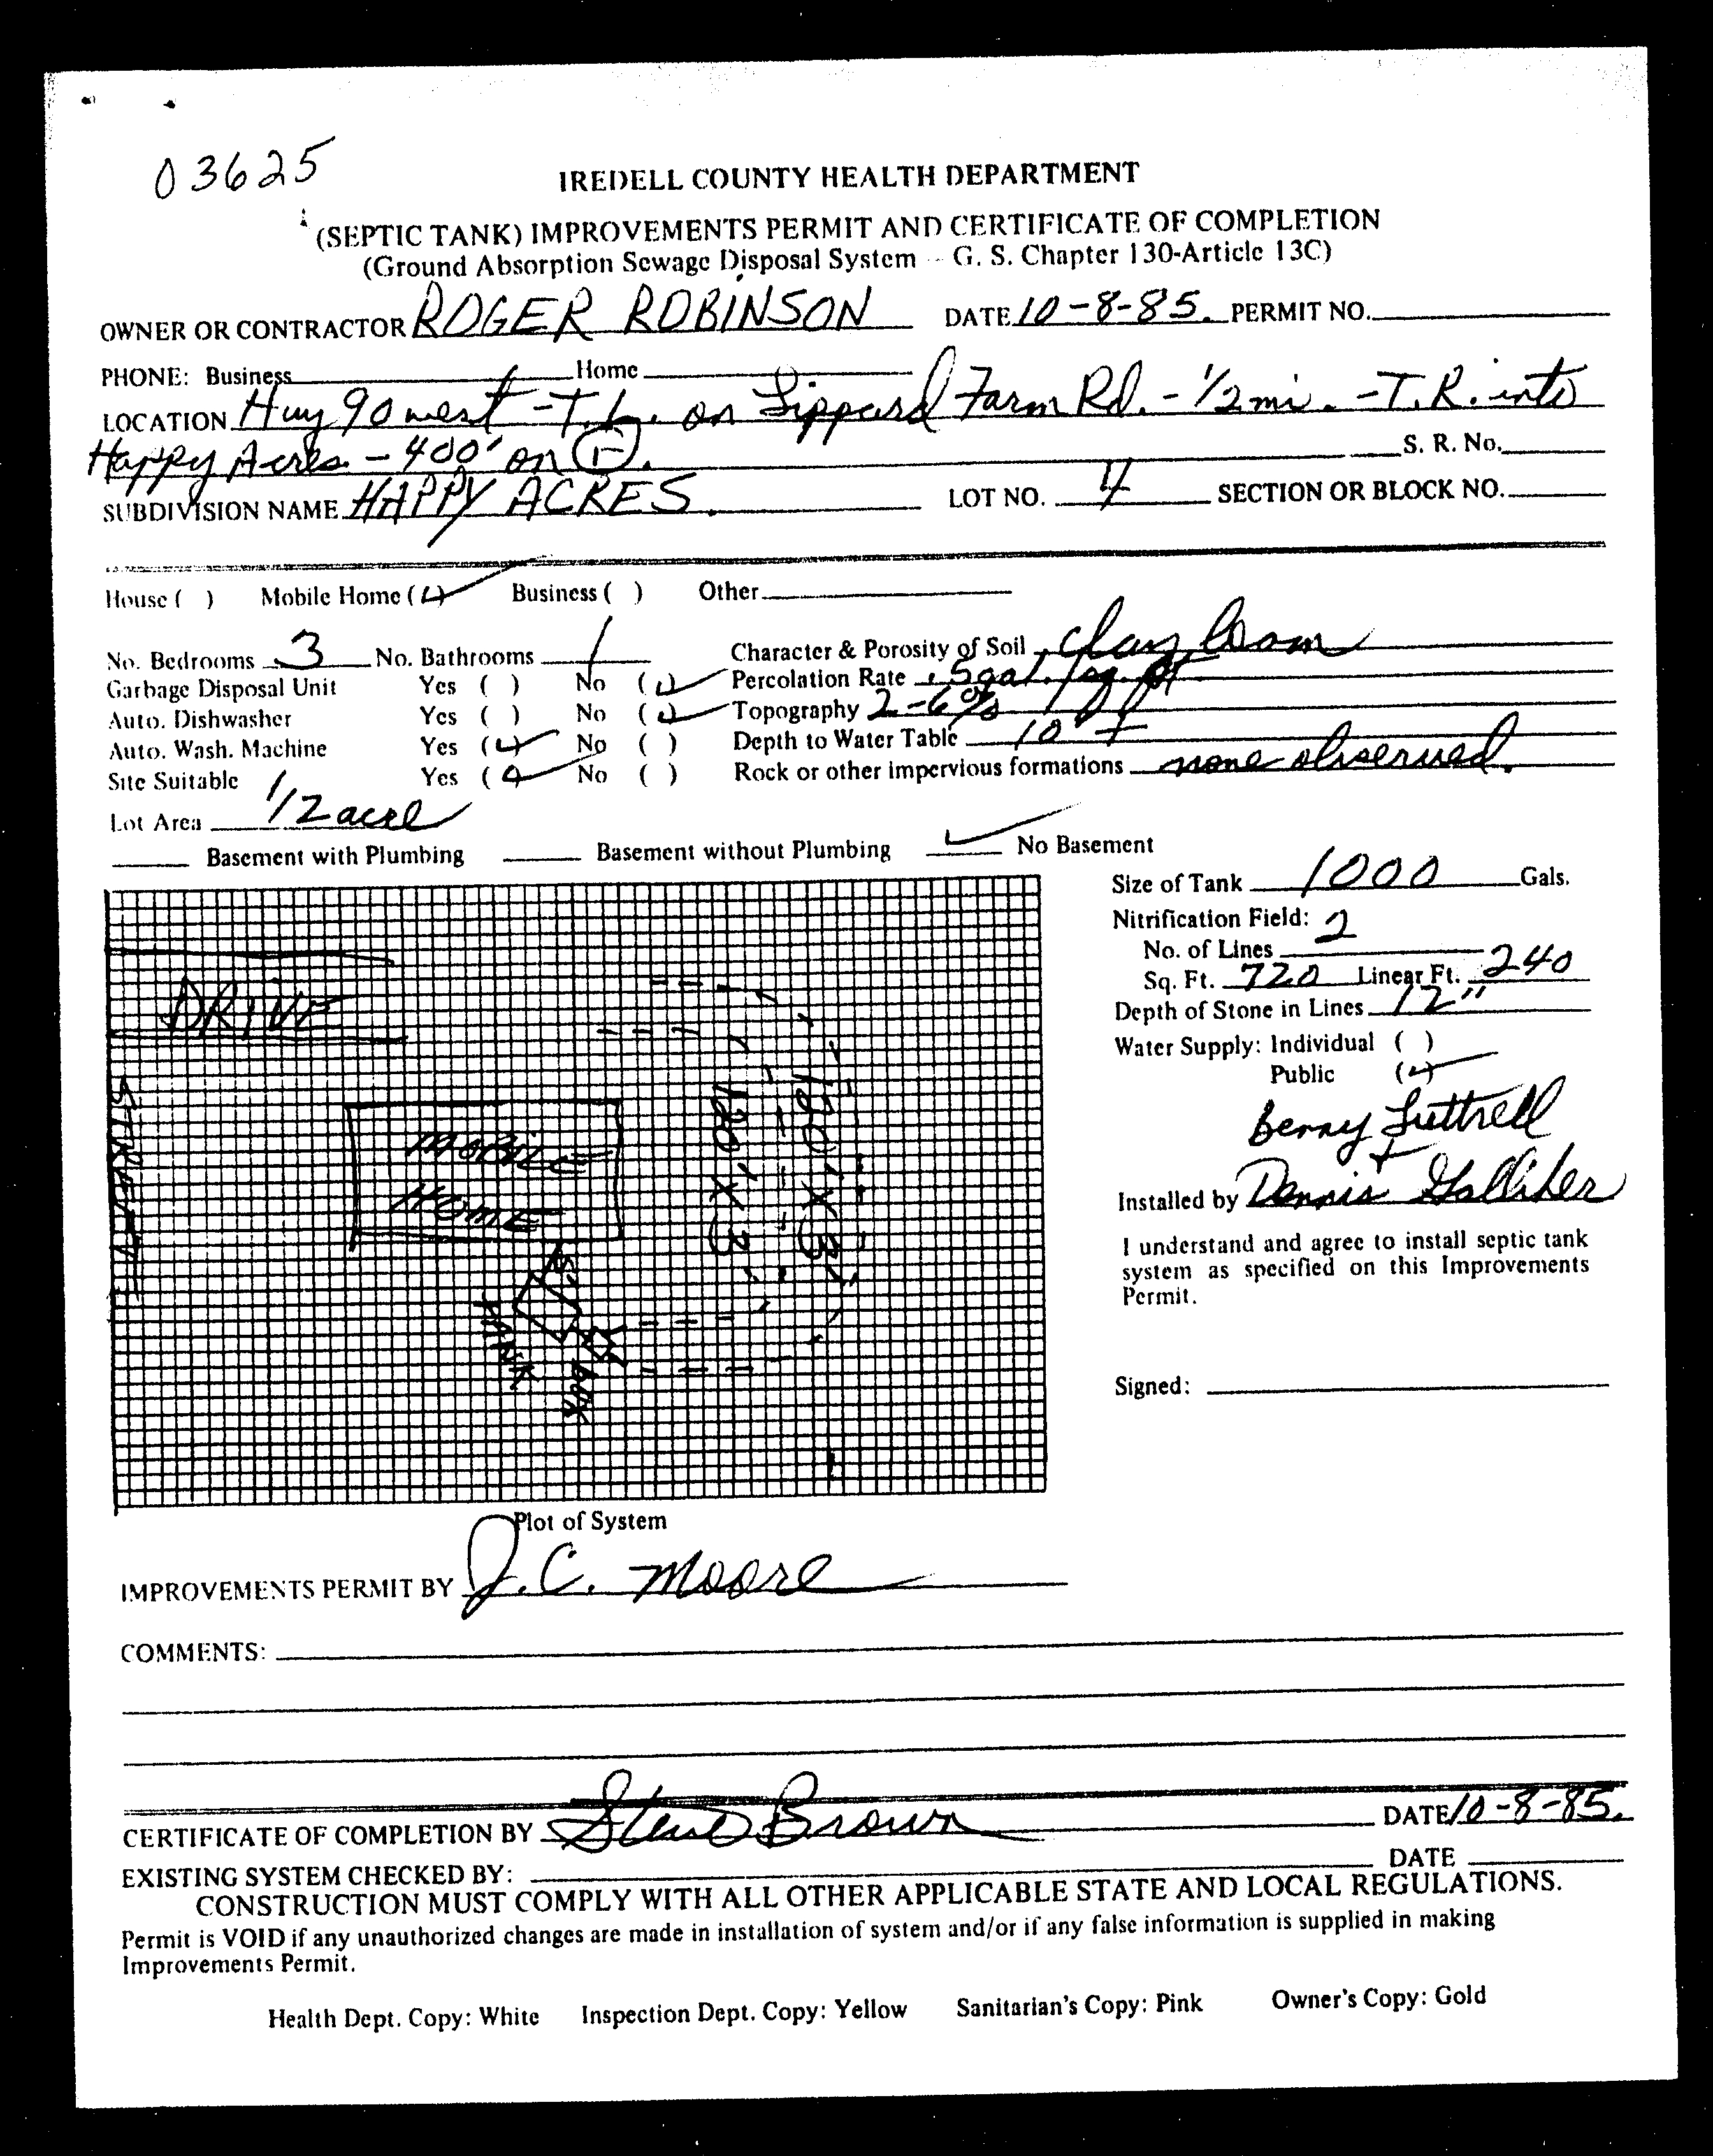 03625
IREDELL COUNTY HEALTH DEPARTMENT
(SEPTIC TANK) IMPROVEMENTS PERMIT AND CERTIFICATE OF COMPLETION
(Ground Absorption Sewage Disposal System - G. S. Chapter 130-Article 13C)
OWNER OR CONTRACTOR ROGER ROBINSON DATE 10-8-85. PERMIT NO.
PHONE: Business Home
LOCATION Hwy 90 west - T.L. on Lippard Farm Rd. - 1/2 mi. - T.R. into
Happy Acres - 400' on S. R. No.
SUBDIVISION NAME HAPPY ACRES. LOT NO. 4 SECTION OR BLOCK NO.
House ( ) Mobile Home (✓) Business ( ) Other
No. Bedrooms 3 No. Bathrooms 1 Character & Porosity of Soil clay loam
Garbage Disposal Unit Yes ( ) No (✓) Percolation Rate .5 gal. / sq. ft
Auto. Dishwasher Yes ( ) No (✓) Topography 2-6%
Auto. Wash. Machine Yes (✓) No ( ) Depth to Water Table 10' +
Site Suitable Yes (✓) No ( ) Rock or other impervious formations none observed.
Lot Area 1/2 acre
Basement with Plumbing Basement without Plumbing ✓ No Basement
Size of Tank 1000 Gals.
Nitrification Field:
No. of Lines 2
Sq. Ft. 720 Linear Ft. 240
Depth of Stone in Lines 12"
Water Supply: Individual ( )
Public (✓)
Benny Luttrell
+
Installed by Dennis Galliher
I understand and agree to install septic tank
system as specified on this Improvements
Permit.
Signed:
DRIVE
STREET
MOBILE
HOME
120' X 3'
120' X 3'
S.
TANK
BOX
Plot of System
IMPROVEMENTS PERMIT BY J.C. Moore
COMMENTS:
CERTIFICATE OF COMPLETION BY Steve Brown DATE 10-8-85.
EXISTING SYSTEM CHECKED BY: DATE
CONSTRUCTION MUST COMPLY WITH ALL OTHER APPLICABLE STATE AND LOCAL REGULATIONS.
Permit is VOID if any unauthorized changes are made in installation of system and/or if any false information is supplied in making
Improvements Permit.
Health Dept. Copy: White Inspection Dept. Copy: Yellow Sanitarian's Copy: Pink Owner's Copy: Gold